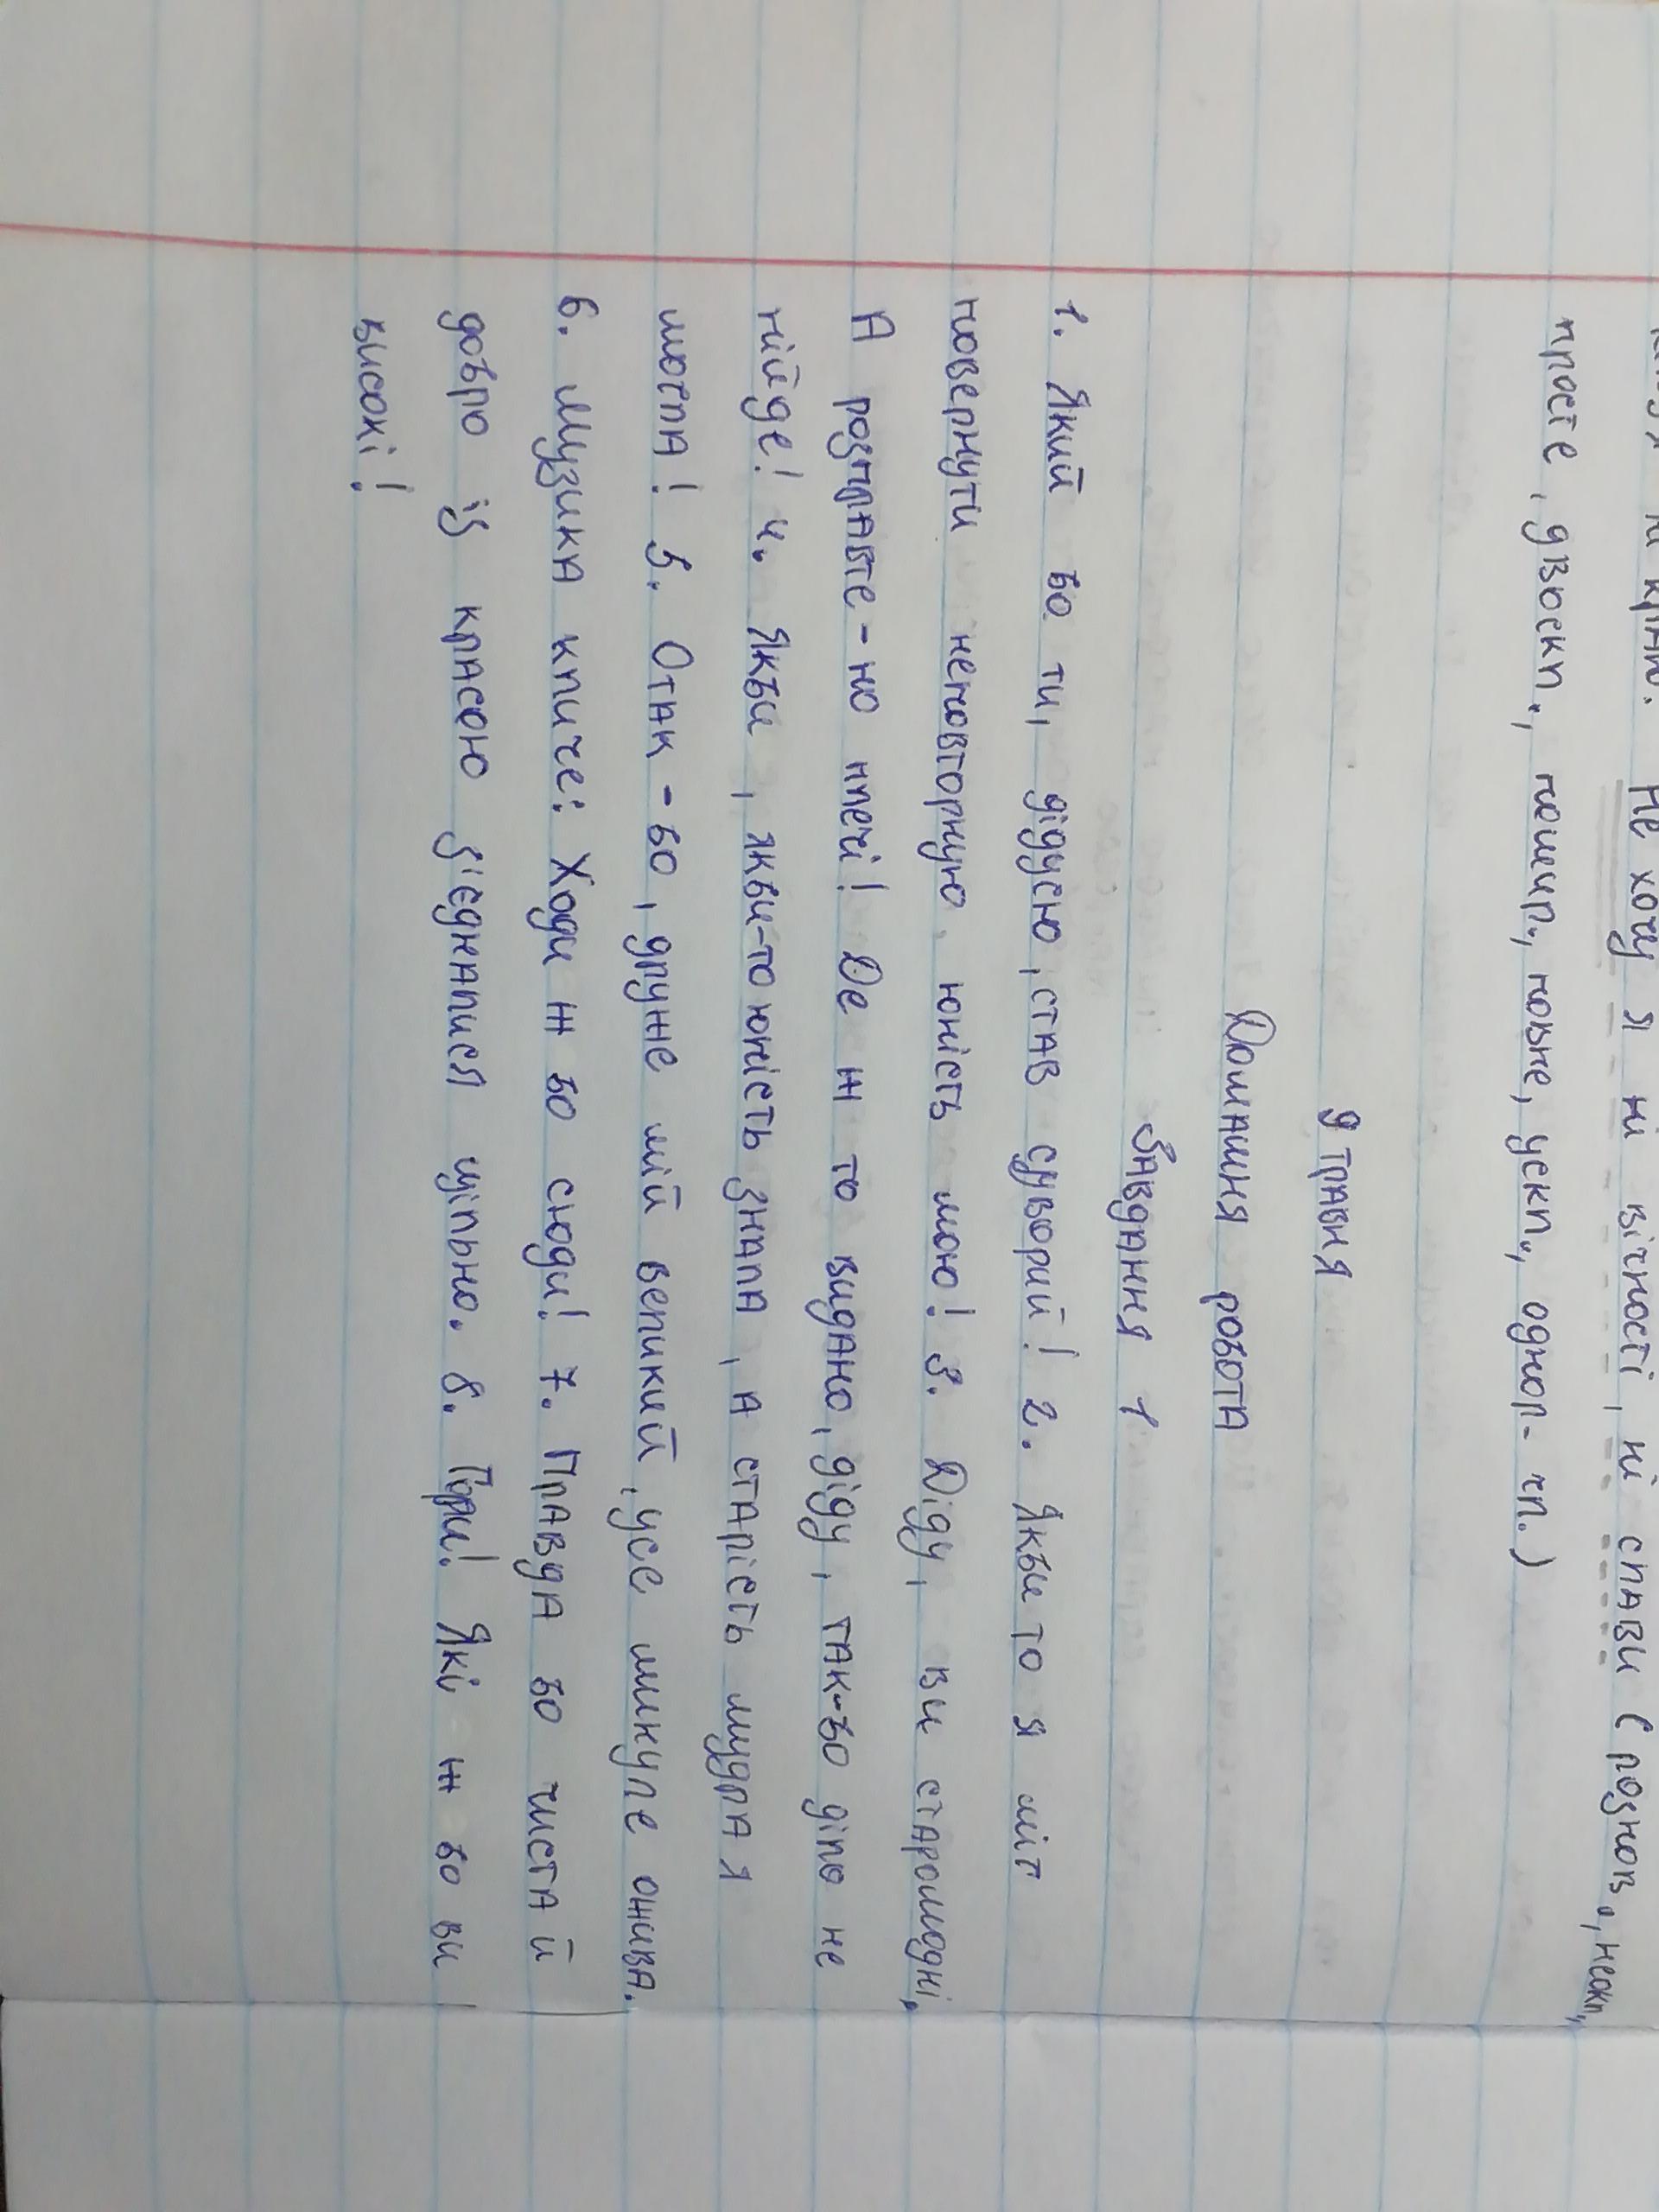 ні краю. Не хочу я ні вічності, ні слави (розпов., неокл.,
просте, двоскл., пошир., повне, ускл., однор. чл.)
9 травня
Домашня робота
Завдання 1
1. Який бо ти, дідусю, став суворий! 2. Якби то я міг
повернути неповторную юність мою! 3. Діду, ви старомодні.
А розправте-но плечі! Де ж то видано, діду, так-бо діло не
пійде! 4. Якби, якби-то юність знала, а старість мудрая
могла! 5. Отак-бо, друже мій великий, усе минуле ожива.
6. Музика кличе: Ходи ж бо сюди! 7. Правда бо чиста й
добро із красою з'єднались щільно. 8. Гори! Які ж бо ви
високі!